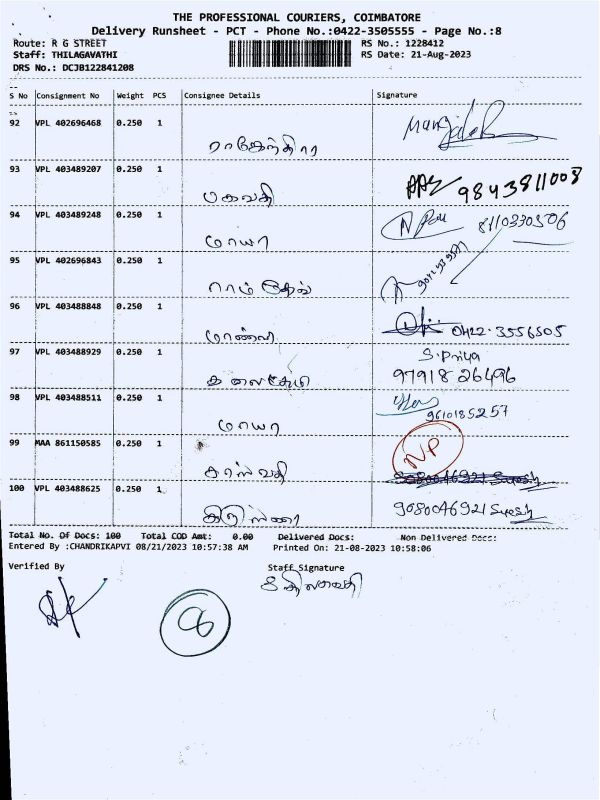 THE PROFESSIONAL COURIERS, COIMBATORE
Delivery Runsheet - PCT - Phone No.:0422-3505555 - Page No.:8
Route: R G STREET RS No.: 1228412
Staff: THILAGAVATHI RS Date: 21-Aug-2023
DRS No.: DCJB122841208
S No Consignment No Weight PCS Consignee Details Signature
92 VPL 402696468 0.250 1
ராஜேந்திரா
93 VPL 403489207 0.250 1
பகவதி 9843811008
94 VPL 403489248 0.250 1
மாயா 8110330506
95 VPL 402696843 0.250 1
ராம் தேவ்
96 VPL 403488848 0.250 1
0422-3556505
97 VPL 403488929 0.250 1 S. Priya
97918 26496
98 VPL 403488511 0.250 1
மாயா 9610185257
99 MAA 861150585 0.250 1 NP
9080046921 Suresh
100 VPL 403488625 0.250 1
9080046921 Suresh
Total No. Of Docs: 100 Total COD Amt: 0.00 Delivered Docs: Non Delivered Docs:
Entered By :CHANDRIKAPVI 08/21/2023 10:57:38 AM Printed On: 21-08-2023 10:58:06
Verified By Staff Signature
8